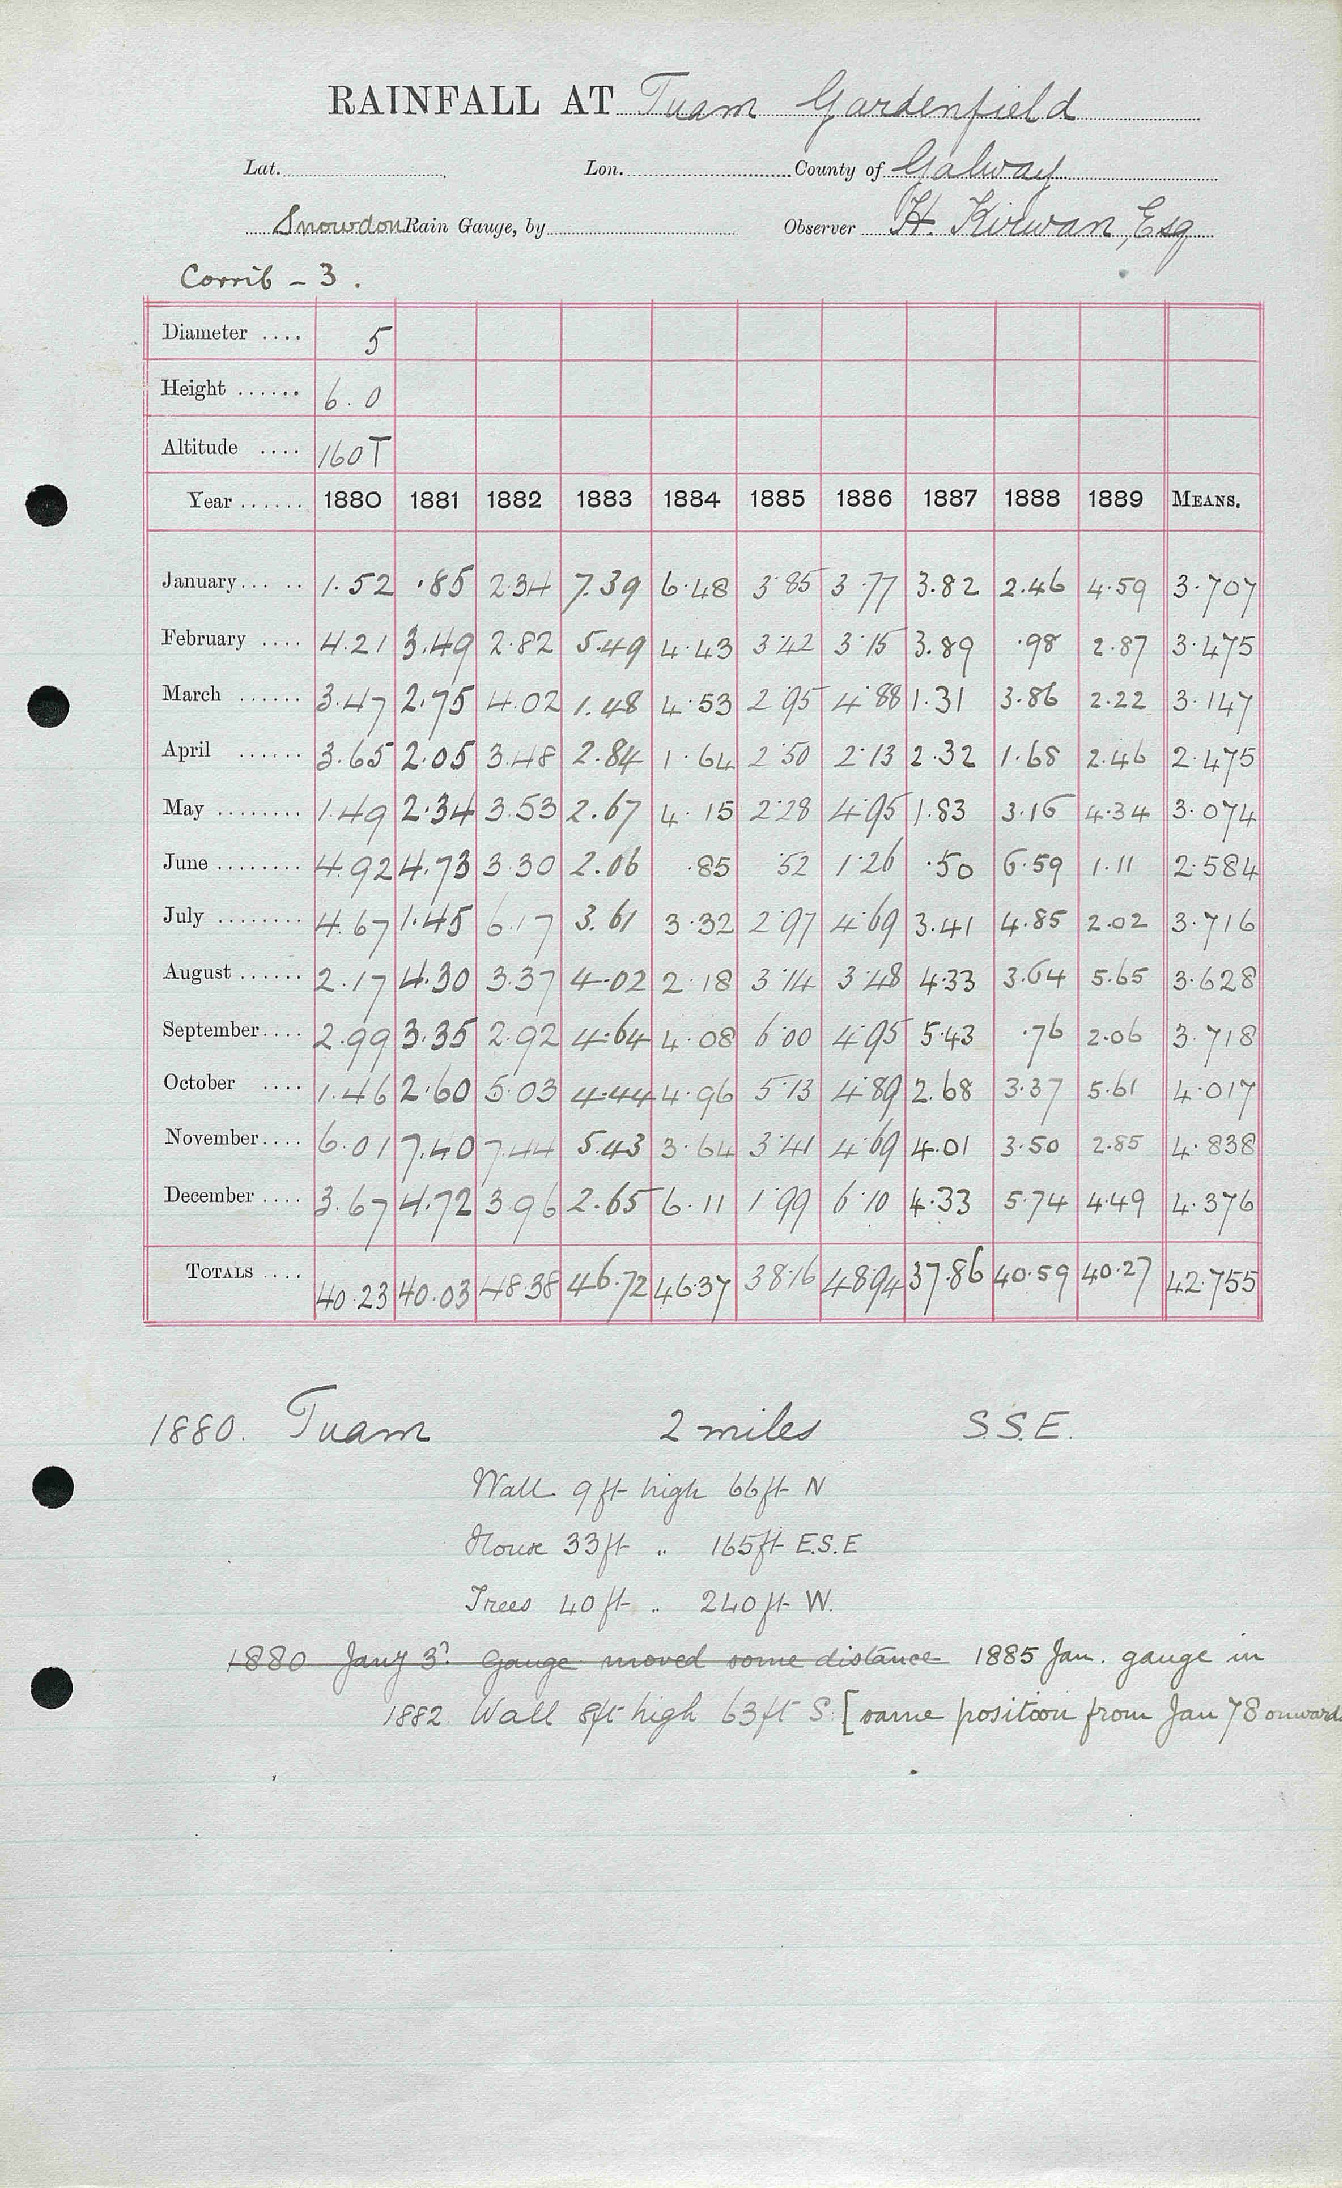 RAINFALL AT Tuam Gardenfield
Lat. Lon. County of Galway
Snowdon Rain Gauge, by Observer H. Kirwan, Esq
Corrib - 3.
Diameter .... 5
Height ...... 6.0
Altitude .... 160T
Year ...... 1880 1881 1882 1883 1884 1885 1886 1887 1888 1889 MEANS.
January ... .. 1.52 .85 2.34 7.39 6.48 3.85 3.77 3.82 2.46 4.59 3.707
February .... 4.21 3.49 2.82 5.49 4.43 3.42 3.15 3.89 .98 2.87 3.475
March ...... 3.47 2.75 4.02 1.48 4.53 2.95 4.88 1.31 3.86 2.22 3.147
April ...... 3.65 2.05 3.48 2.84 1.64 2.50 2.13 2.32 1.68 2.46 2.475
May ........ 1.49 2.34 3.53 2.67 4.15 2.28 4.95 1.83 3.16 4.34 3.074
June ........ 4.92 4.73 3.30 2.06 .85 .52 1.26 .50 6.59 1.11 2.584
July ........ 4.67 1.45 6.17 3.61 3.32 2.97 4.69 3.41 4.85 2.02 3.716
August ...... 2.17 4.30 3.37 4.02 2.18 3.14 3.48 4.33 3.64 5.65 3.628
September .... 2.99 3.35 2.92 4.64 4.08 6.00 4.95 5.43 .76 2.06 3.718
October .... 1.46 2.60 5.03 4.44 4.96 5.13 4.89 2.68 3.37 5.61 4.017
November .... 6.01 7.40 7.44 5.43 3.64 3.41 4.69 4.01 3.50 2.85 4.838
December .... 3.67 4.72 3.96 2.65 6.11 1.99 6.10 4.33 5.74 4.49 4.376
TOTALS .... 40.23 40.03 48.38 46.72 46.37 38.16 48.94 37.86 40.59 40.27 42.755
1880. Tuam 2 miles S.S.E.
Wall 9ft high 66ft N
House 33ft " 165ft E.S.E
Trees 40ft " 240ft W.
1880 Jany 3? Gauge moved some distance 1885 Jan. gauge in
1882 Wall 8ft high 63ft S. [same position from Jan 78 onward